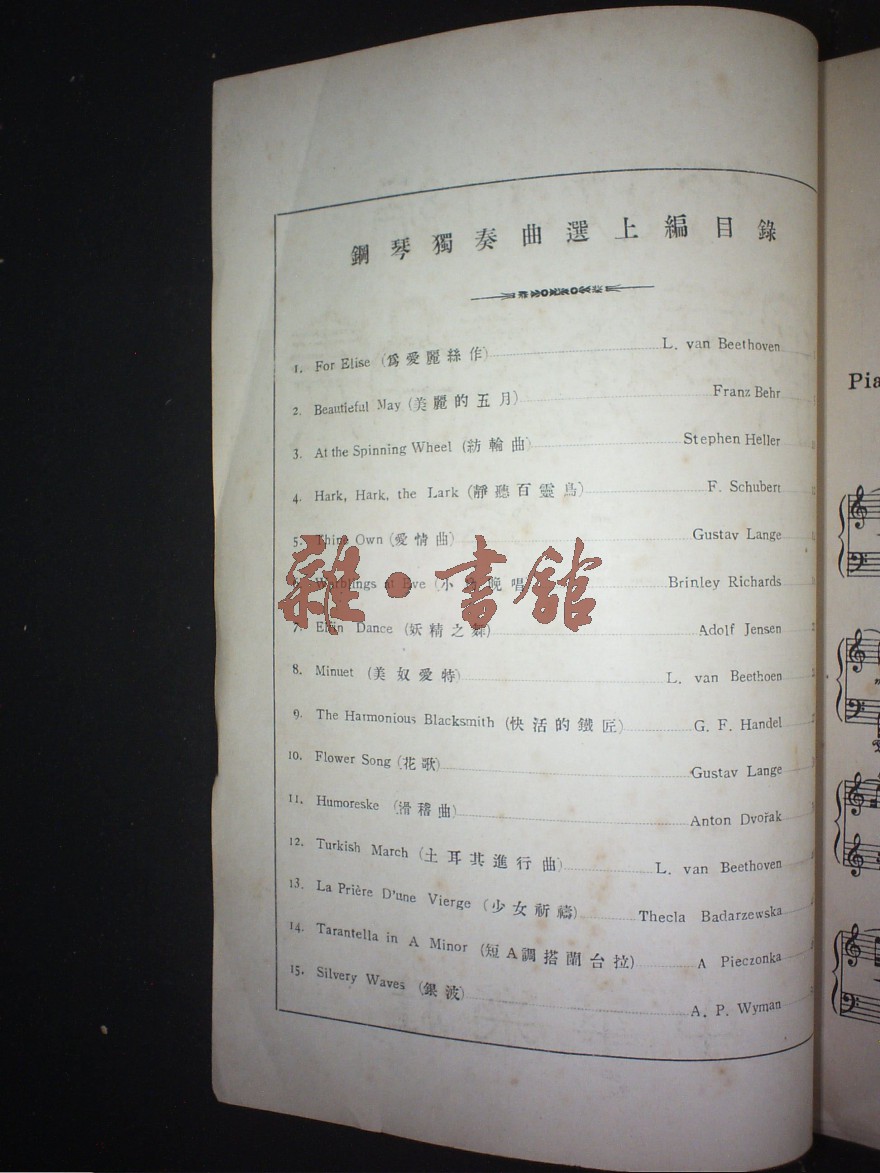 鋼琴獨奏曲選上編目錄
1. For Elise (爲愛麗絲作) L. van Beethoven
2. Beautieful May (美麗的五月) Franz Behr
3. At the Spinning Wheel (紡輪曲) Stephen Heller
4. Hark, Hark, the Lark (靜聽百靈鳥) F. Schubert
5. Thine Own (愛情曲) Gustav Lange
Warblings at Eve (小 晚唱 Brinley Richards
7. Elfin Dance (妖精之舞) Adolf Jensen
8. Minuet (美奴愛特) L. van Beethoen
9. The Harmonious Blacksmith (快活的鐵匠) G. F. Handel
10. Flower Song (花歌) Gustav Lange
11. Humoreske (滑稽曲) Anton Dvořak
12. Turkish March (土耳其進行曲) L. van Beethoven
13. La Prière D'une Vierge (少女祈禱) Thecla Badarzewska
14. Tarantella in A Minor (短A調搭蘭台拉) A Pieczonka
15. Silvery Waves (銀波) A. P. Wyman
雜·書館
Pia